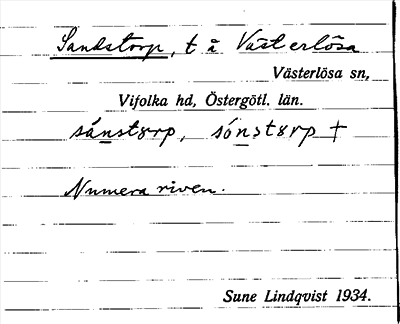 Sandstorp, t å Västerlösa
Västerlösa sn,
Vifolka hd, Östergötl. län.
sánstɤrp, sónstɤrp †
Numera riven.
Sune Lindqvist 1934.